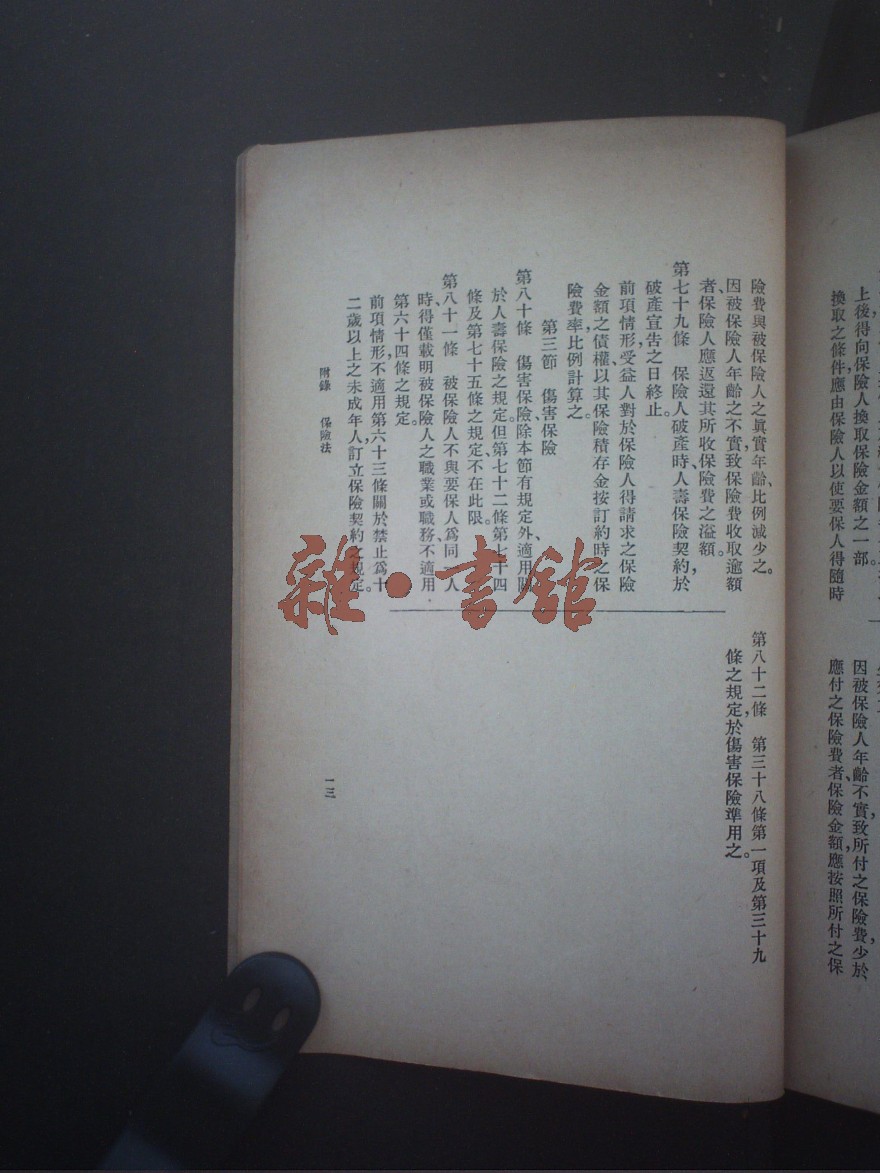 上後得向保險人換取保險金額之一部。
換取之條件應由保險人以使要保人得隨時
因被保險人年齡不實,致所付之保險費少於
應付之保險費者,保險金額應按照所付之保
險費與被保險人之眞實年齡比例減少之。
因被保險人年齡之不實,致保險費收取逾額
者,保險人應返還其所收保險費之溢額。
第七十九條 保險人破產時,人壽保險契約於
破產宣告之日終止。
前項情形,受益人對於保險人得請求之保險
金額之債權,以其保險積存金按訂約時之保
險費率比例計算之。
第三節 傷害保險
第八十條 傷害保險,除本節有規定外,適用關
於人壽保險之規定。但第七十二條、第七十四
條及第七十五條之規定,不在此限。
第八十一條 被保險人不與要保人爲同一人
時,得僅載明被保險人之職業或職務,不適用
第六十四條之規定。
前項情形,不適用第六十三條關於禁止爲十
二歲以上之未成年人訂立保險契約之規定。
第八十二條 第三十八條第一項及第三十九
條之規定,於傷害保險準用之。
附錄 保險法
一三
雜·書館